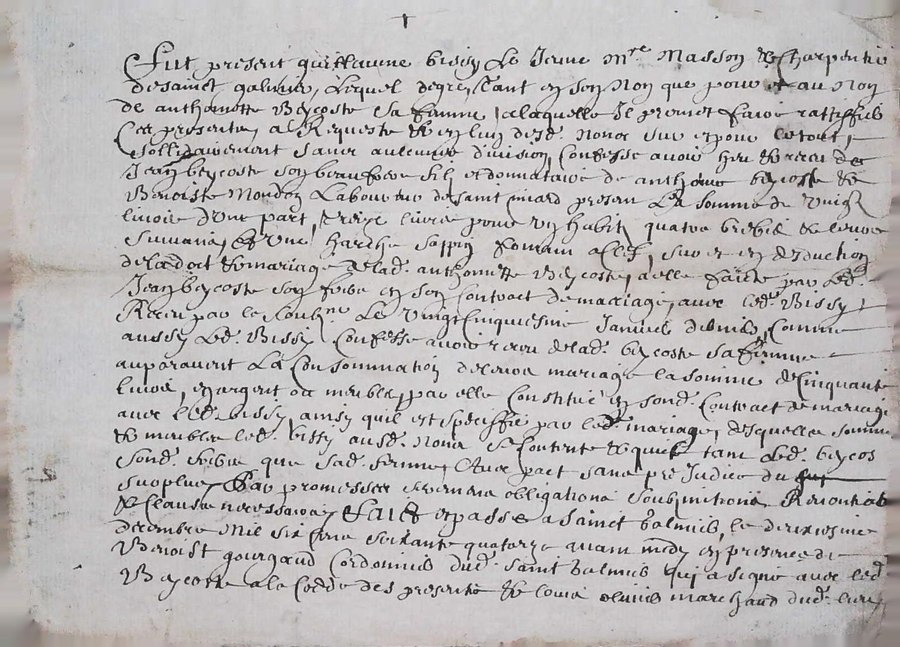 Fut present guillaume bissy Le Jeune m.re Masson & Charpentie
de sainct galmier, Lequel de gre, tant en son Non que pour et au Non
de anthonette Beycoste sa femme, a laquelle Il promet faire rattiffier
Ces presentes, a Requeste & en lun desd. Noms sur et pour le tout,
sollidairement sans aulcune division, Confesse avoir heu & receu de
Jean beycoste son beaufrere fils et donnataire de anthoine beycoste &
Benoiste Mondon Laboureur de saint présent La somme de vingt
livres d'une part, treize livres pour un habit, quatre brebis &
suivans, & une harche sappin fermant a clef, sur et en deduction
de la dot & mariage de lad. anthonette Beycoste, a elle faicte par led.
Jean beycoste son frere en son Contract de mariage, avec led. Bissy
Receu par le soubz.ne Le vingt cinquiesme Janvier dernier, Comme
aussy led. Bissy Confesse avoir receu de lad. beycoste sa femme
auparavent La Consommation de leur mariage la somme de Cinquante
livres, en argent ou meubles, par elle Constitué en sond. Contract de mariage
avec led. bissy ainsy quil est speciffié par led. mariage, desquelle somme
& meubles led. bissy ausd. Noms se Contente & quitte tant led. beycos
sond. frere que sad. femme, Avec pact sans pre Judice du
surplus, Par promesses serements obligations soubmitions Renontiat
& Clauses necessaires, Faict et passé a sainct Galmier, le deuxiesme
decembre Mil six cens soixante quatorze avant midy en presence de
Benoist gourgaud Cordonnier dud. saint Galmier qui a signé avec led.
Beycoste a la Cedde des presentes & louis marchand dud. lieu